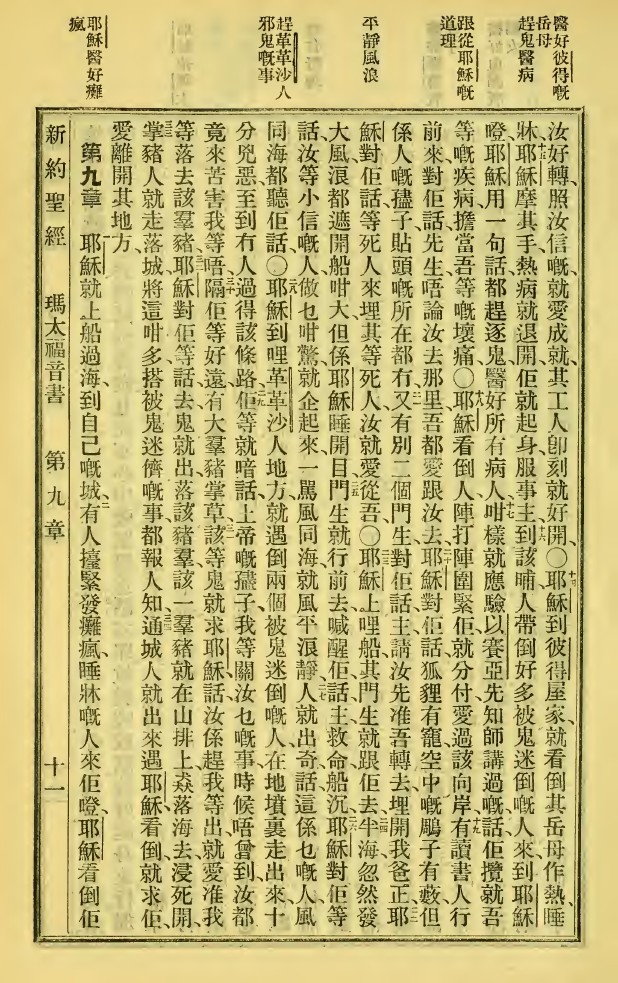 醫好彼得嘅
岳母
趕鬼醫病
跟從耶穌嘅
道理
平靜風浪
趕革革沙人
邪鬼嘅事
耶穌醫好癱
瘋
汝好轉照汝信嘅就愛成就其工人卽刻就好開〇耶穌到彼得屋家就看倒其岳母作熱睡
牀耶穌摩其手熱病就退開佢就起身服事主到該晡人帶倒好多被鬼迷倒嘅人來到耶穌
嶝耶穌用一句話都趕逐鬼醫好所有病人咁樣就應驗以賽亞先知師講過嘅話佢攬就吾
等嘅疾病擔當吾等嘅壞痛〇耶穌看倒人陣打陣圍緊佢就分付愛過該向岸有讀書人行
前來對佢話先生唔論汝去那里吾都愛跟汝去耶穌對佢話狐狸有竉空中嘅鵰子有藪但
係人嘅孻子貼頭嘅所在都冇又有別二個門生對佢話主請汝先准吾轉去埋開我爸正耶
穌對佢話等死人來埋其等死人汝就愛從吾〇耶穌上哩船其門生就跟佢去半海忽然發
大風浪都遮開船咁大但係耶穌睡開目門生就行前去喊醒佢話主救命船沉耶穌對佢等
話汝等小信嘅人做乜咁驚就企起來一罵風同海就風平浪靜人就出奇話這係乜嘅人風
同海都聽佢話〇耶穌到哩革革沙人地方就遇倒兩個被鬼迷倒嘅人在地墳裏走出來十
分兇惡至到冇人過得該條路佢等就喑話上帝嘅孻子我等關汝乜嘅事時候唔曾到汝都
竟來苦害我等唔隔佢等好遠有大羣豬掌草該等鬼就求耶穌話汝係趕我等出就愛准我
等落去該羣豬耶穌對佢等話去鬼就出落該豬羣該一羣豬就在山排上猋落海去浸死開
掌豬人就走落城將這咁多搭被鬼迷儕嘅事都報人知通城人就出來遇耶穌看倒就求佢
愛離開其地方
第九章 耶穌就上船過海到自己嘅城有人擡緊發癱瘋睡牀嘅人來佢嶝耶穌看倒佢
新約聖經 瑪太福音書 第九章 十一